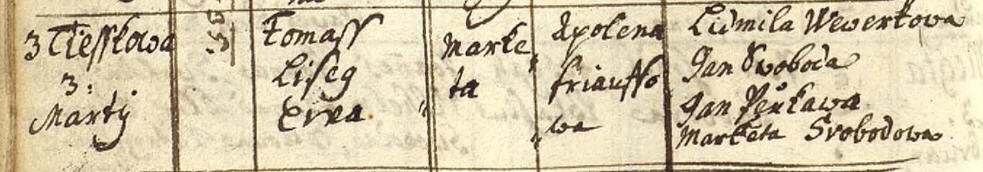 3 Tiesskowa
3:
Martij
Tomass
Liseg
Ewa
Marke„
ta
Apolena
friausso
„wa
Ludmila Wewerkowa
Jan Swoboda
Jan Pěrkawa
Marketa Swobodowa